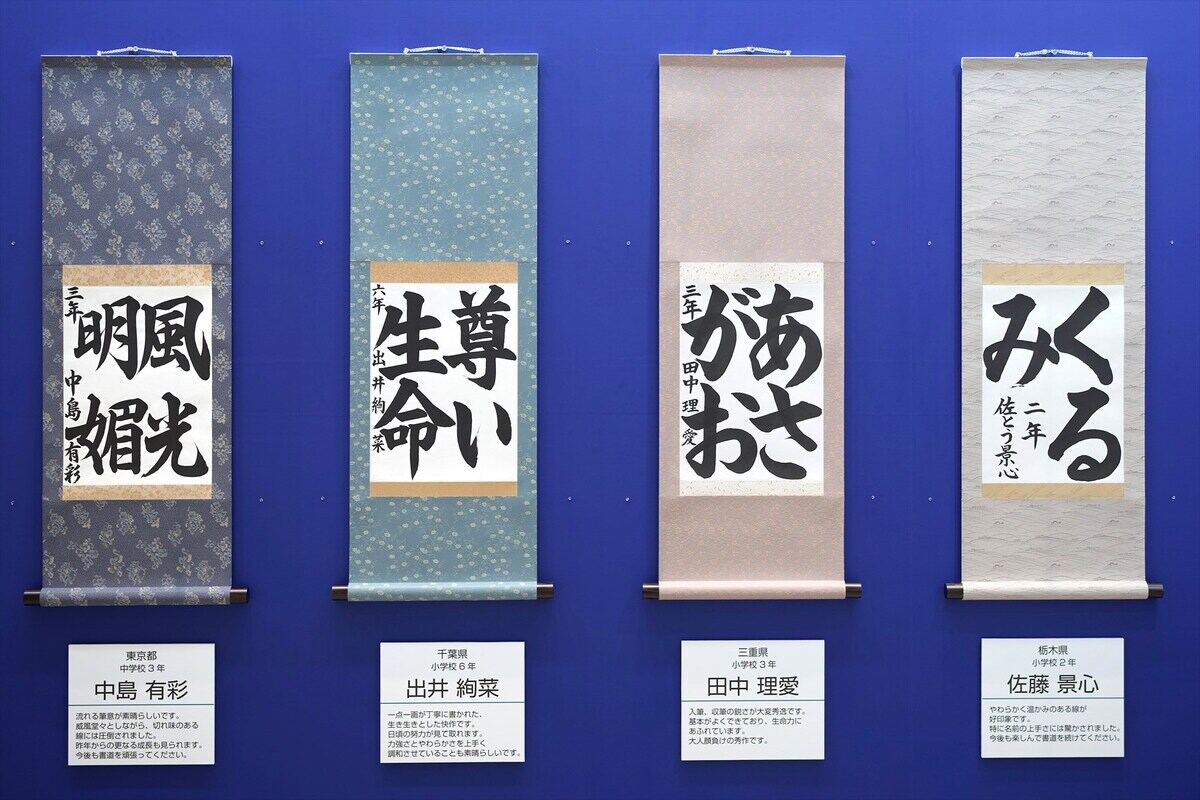 風光
明媚
三年 中島有彩
東京都
中学校3年
中島 有彩
流れる筆意が素晴らしいです。
威風堂々としながら、切れ味のある
線には圧倒されました。
昨年からの更なる成長も見られます。
今後も書道を頑張ってください。
尊い
生命
六年 出井絢菜
千葉県
小学校6年
出井 絢菜
一点一画が丁寧に書かれた、
生き生きとした快作です。
日頃の努力が見て取れます。
力強さとやわらかさを上手く
調和させていることも素晴らしいです。
あさ
がお
三年 田中理愛
三重県
小学校3年
田中 理愛
入筆、収筆の鋭さが大変秀逸です。
基本がよくできており、生命力に
あふれています。
大人顔負けの秀作です。
くる
み
二年
佐とう景心
栃木県
小学校2年
佐藤 景心
やわらかく温かみのある線が
好印象です。
特に名前の上手さには驚かされました。
今後も楽しんで書道を続けてください。